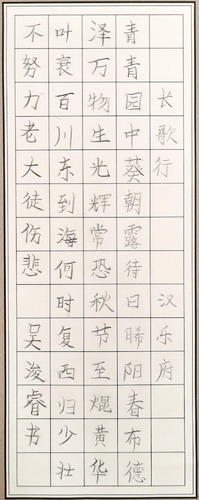 长歌行 汉乐府
青青园中葵朝露待日晞阳春布德
泽万物生光辉常恐秋节至焜黄华
叶衰百川东到海何时复西归少壮
不努力老大徒伤悲 吴浚睿书